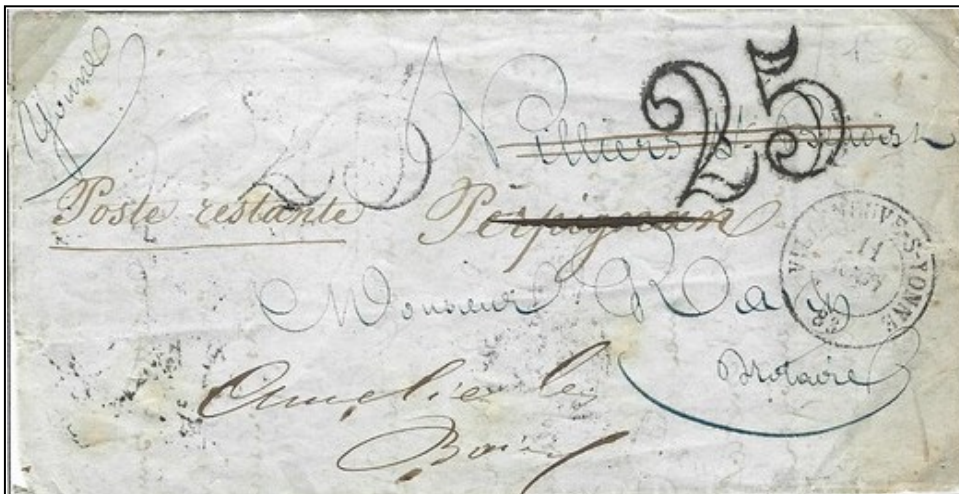 Yonne
25
Villiers St Benoist
Poste restante Perpignan
VILLENEUVE-S-YONNE
11
Monsieur
Notaire
Amélie les
Bains